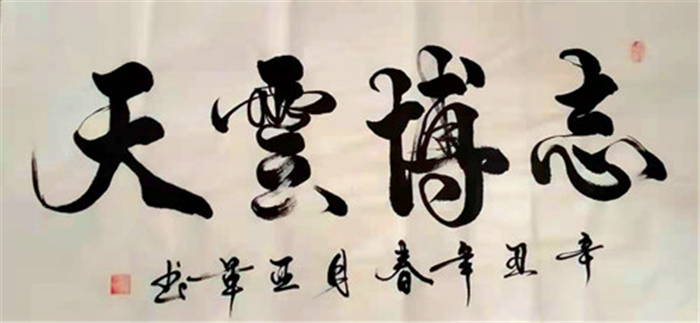 志博雲天
辛丑年春月書